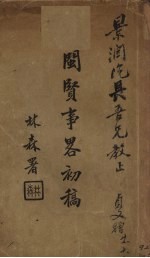 景潤沇長吾兄教正
閩賢事畧初稿
林森署